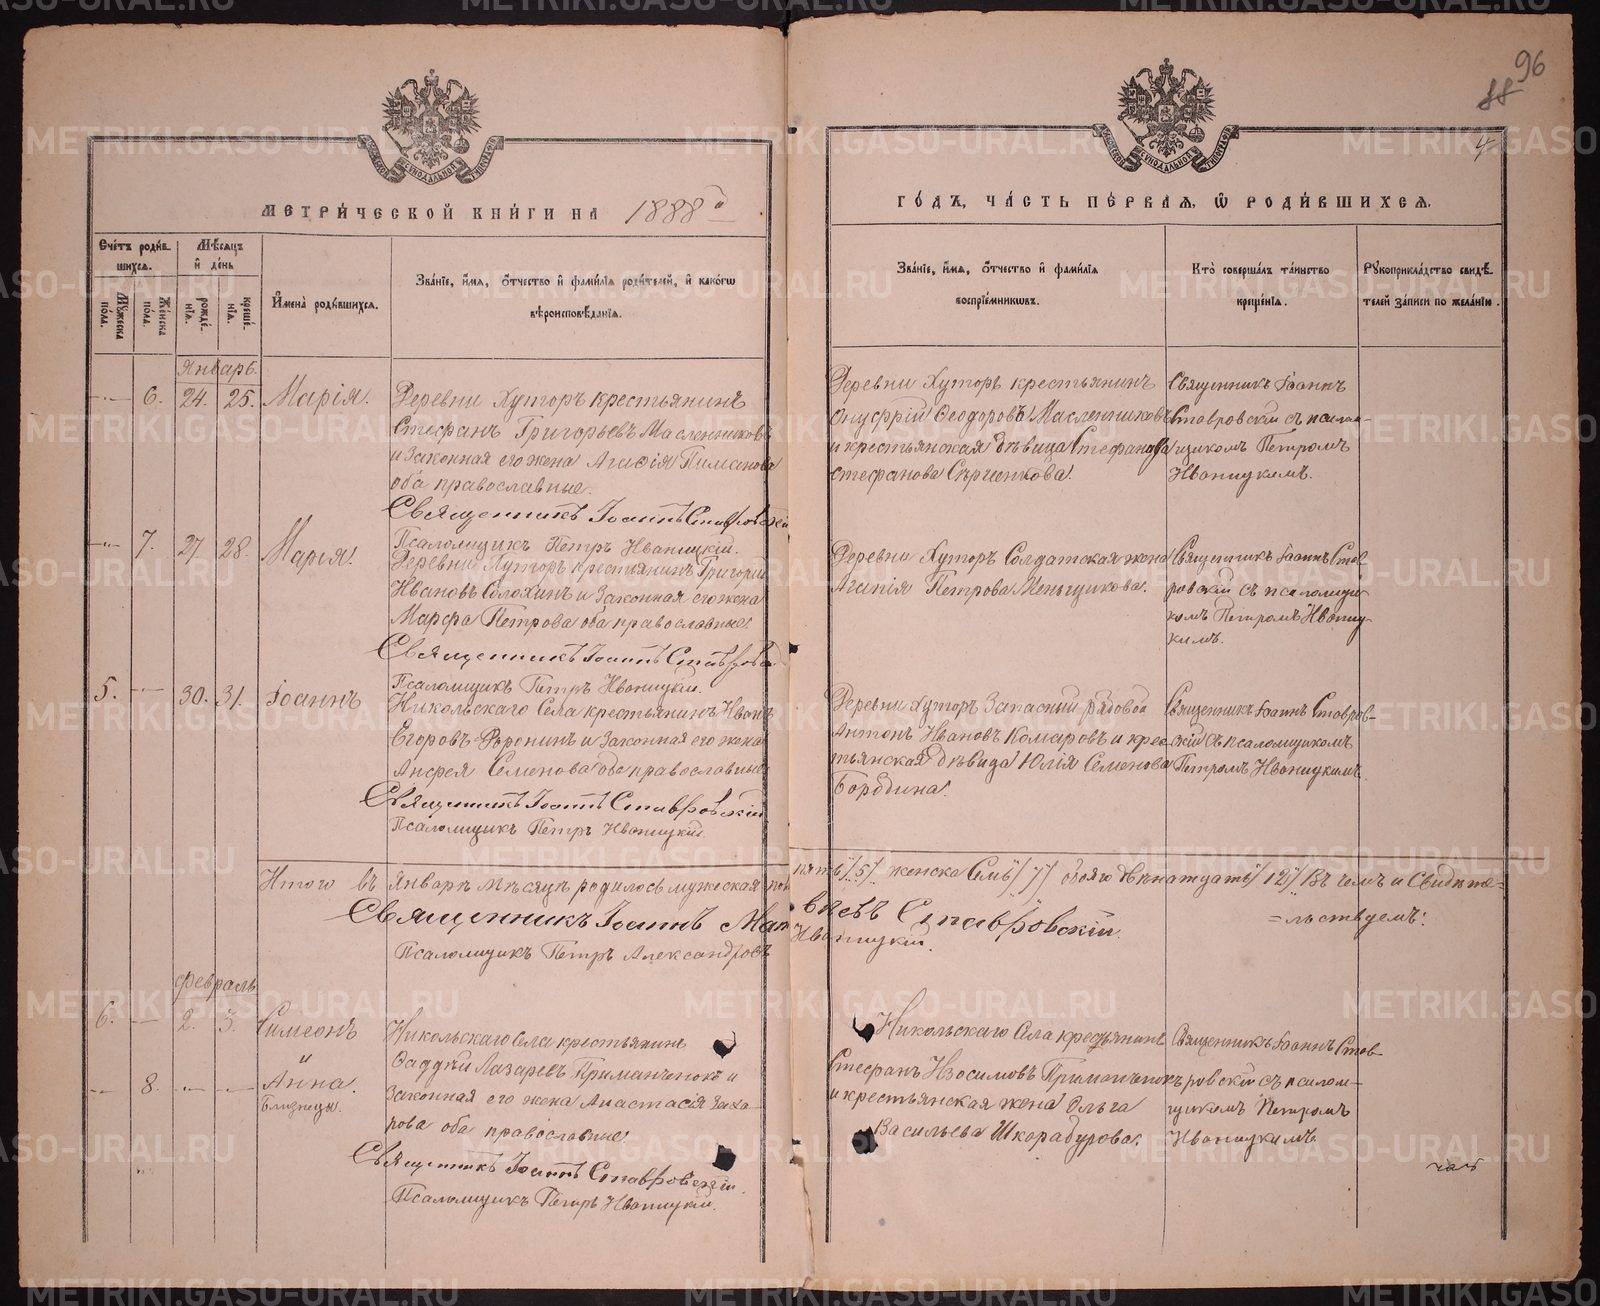 96
88
4
МЕТРИ́ЧЕСКОЙ КНИ́ГИ НА 1888 о
ГО́ДЪ, ЧА́СТЬ ПЕ́РВАЯ, Ѿ РОДИ́ВШИХСЯ.
Сче́тъ роди́в
шихся.
Мꙋжеска пола.
Же́нска пола.
Мѣ́сяцъ
и де́нь
рожде́нїя.
креще́нїя.
И́мена̀ роди́вшихся.
Зва́нїе, и́мя, о́тчество и фами́лїя роди́телей, и како́гѡ
вѣроисповѣ́данїя.
Зва́нїе, и́мя, о́тчество и фами́лїя
воспрїе́мникѡвъ.
Кто̀ соверша́лъ та́инство
креще́нїя.
Рꙋкоприкла́дство свидѣ́
телей за́писи по жела́нїю.
Январь.
6. 24. 25. Марія.
Деревни Хуторъ крестьянинъ
Стефанъ Григорьевъ Масленниковъ
и законная его жена Агафія Пиманова
оба православные.
Священникъ Іоаннъ Ставровскій
Псаломщикъ Петръ Иваницкій.
Деревни Хуторъ крестьянинъ
Онуфрій Феодоровъ Масленниковъ
и крестьянская дѣвица Стефанида
Стефанова
Священникъ Іоаннъ
Ставровскій съ псалом-
щикомъ Петромъ
Иваницкимъ.
7. 27. 28. Марія.
Деревни Хуторъ крестьянинъ Григорій
Ивановъ Солохинъ и законная его жена
Марфа Петрова оба православные
Священникъ Іоаннъ Ставровскій
Псаломщикъ Петръ Иваницкій.
Деревни Хуторъ Солдатская жена
Агапія Петрова Меньщикова.
Священникъ Іоаннъ Став
ровскій съ псаломщи
комъ Петромъ Иваниц
кимъ.
5. 30. 31. Іоаннъ
Никольскаго Села крестьянинъ Иванъ
Егоровъ и законная его жена
Семенова оба православные
Священникъ Іоаннъ Ставровскій
Псаломщикъ Петръ Иваницкій.
Деревни Хуторъ Запасный рядовой
Антонъ Ивановъ Комаровъ и крес
тьянская дѣвица Юлія Семенова
Бородина.
Священникъ Іоаннъ Ставров-
скій съ псаломщикомъ
Петромъ Иваницкимъ.
Итого въ Январѣ мѣсяцѣ родилось мужеска пола пять /5/ женска Семь /7/ обоего двѣнатцать /12/ Въ чемъ и Свидѣте-
=льствуемъ:
Священникъ Іоаннъ Ставровскій.
Псаломщикъ Петръ Александровъ Иваницкій.
Февраль
6. 2. 3. Симеонъ
и
8. Анна.
Близнецы.
Никольскаго Села крестьянинъ
Фаддѣй Лазаревъ Приманченокъ и
законная его жена Анастасія Заха-
рова оба православные.
Священникъ Іоаннъ Ставровскій.
Псаломщикъ Петръ Иваницкій.
Никольскаго Села крестьянинъ
Стефанъ Изосимовъ Приманченокъ
и крестьянская жена Ольга
Васильева Шкарабурова.
Священникъ Іоаннъ Став-
ровскій съ псалом-
щикомъ Петромъ
Иваницкимъ.
METRIKI.GASO-URAL.RU